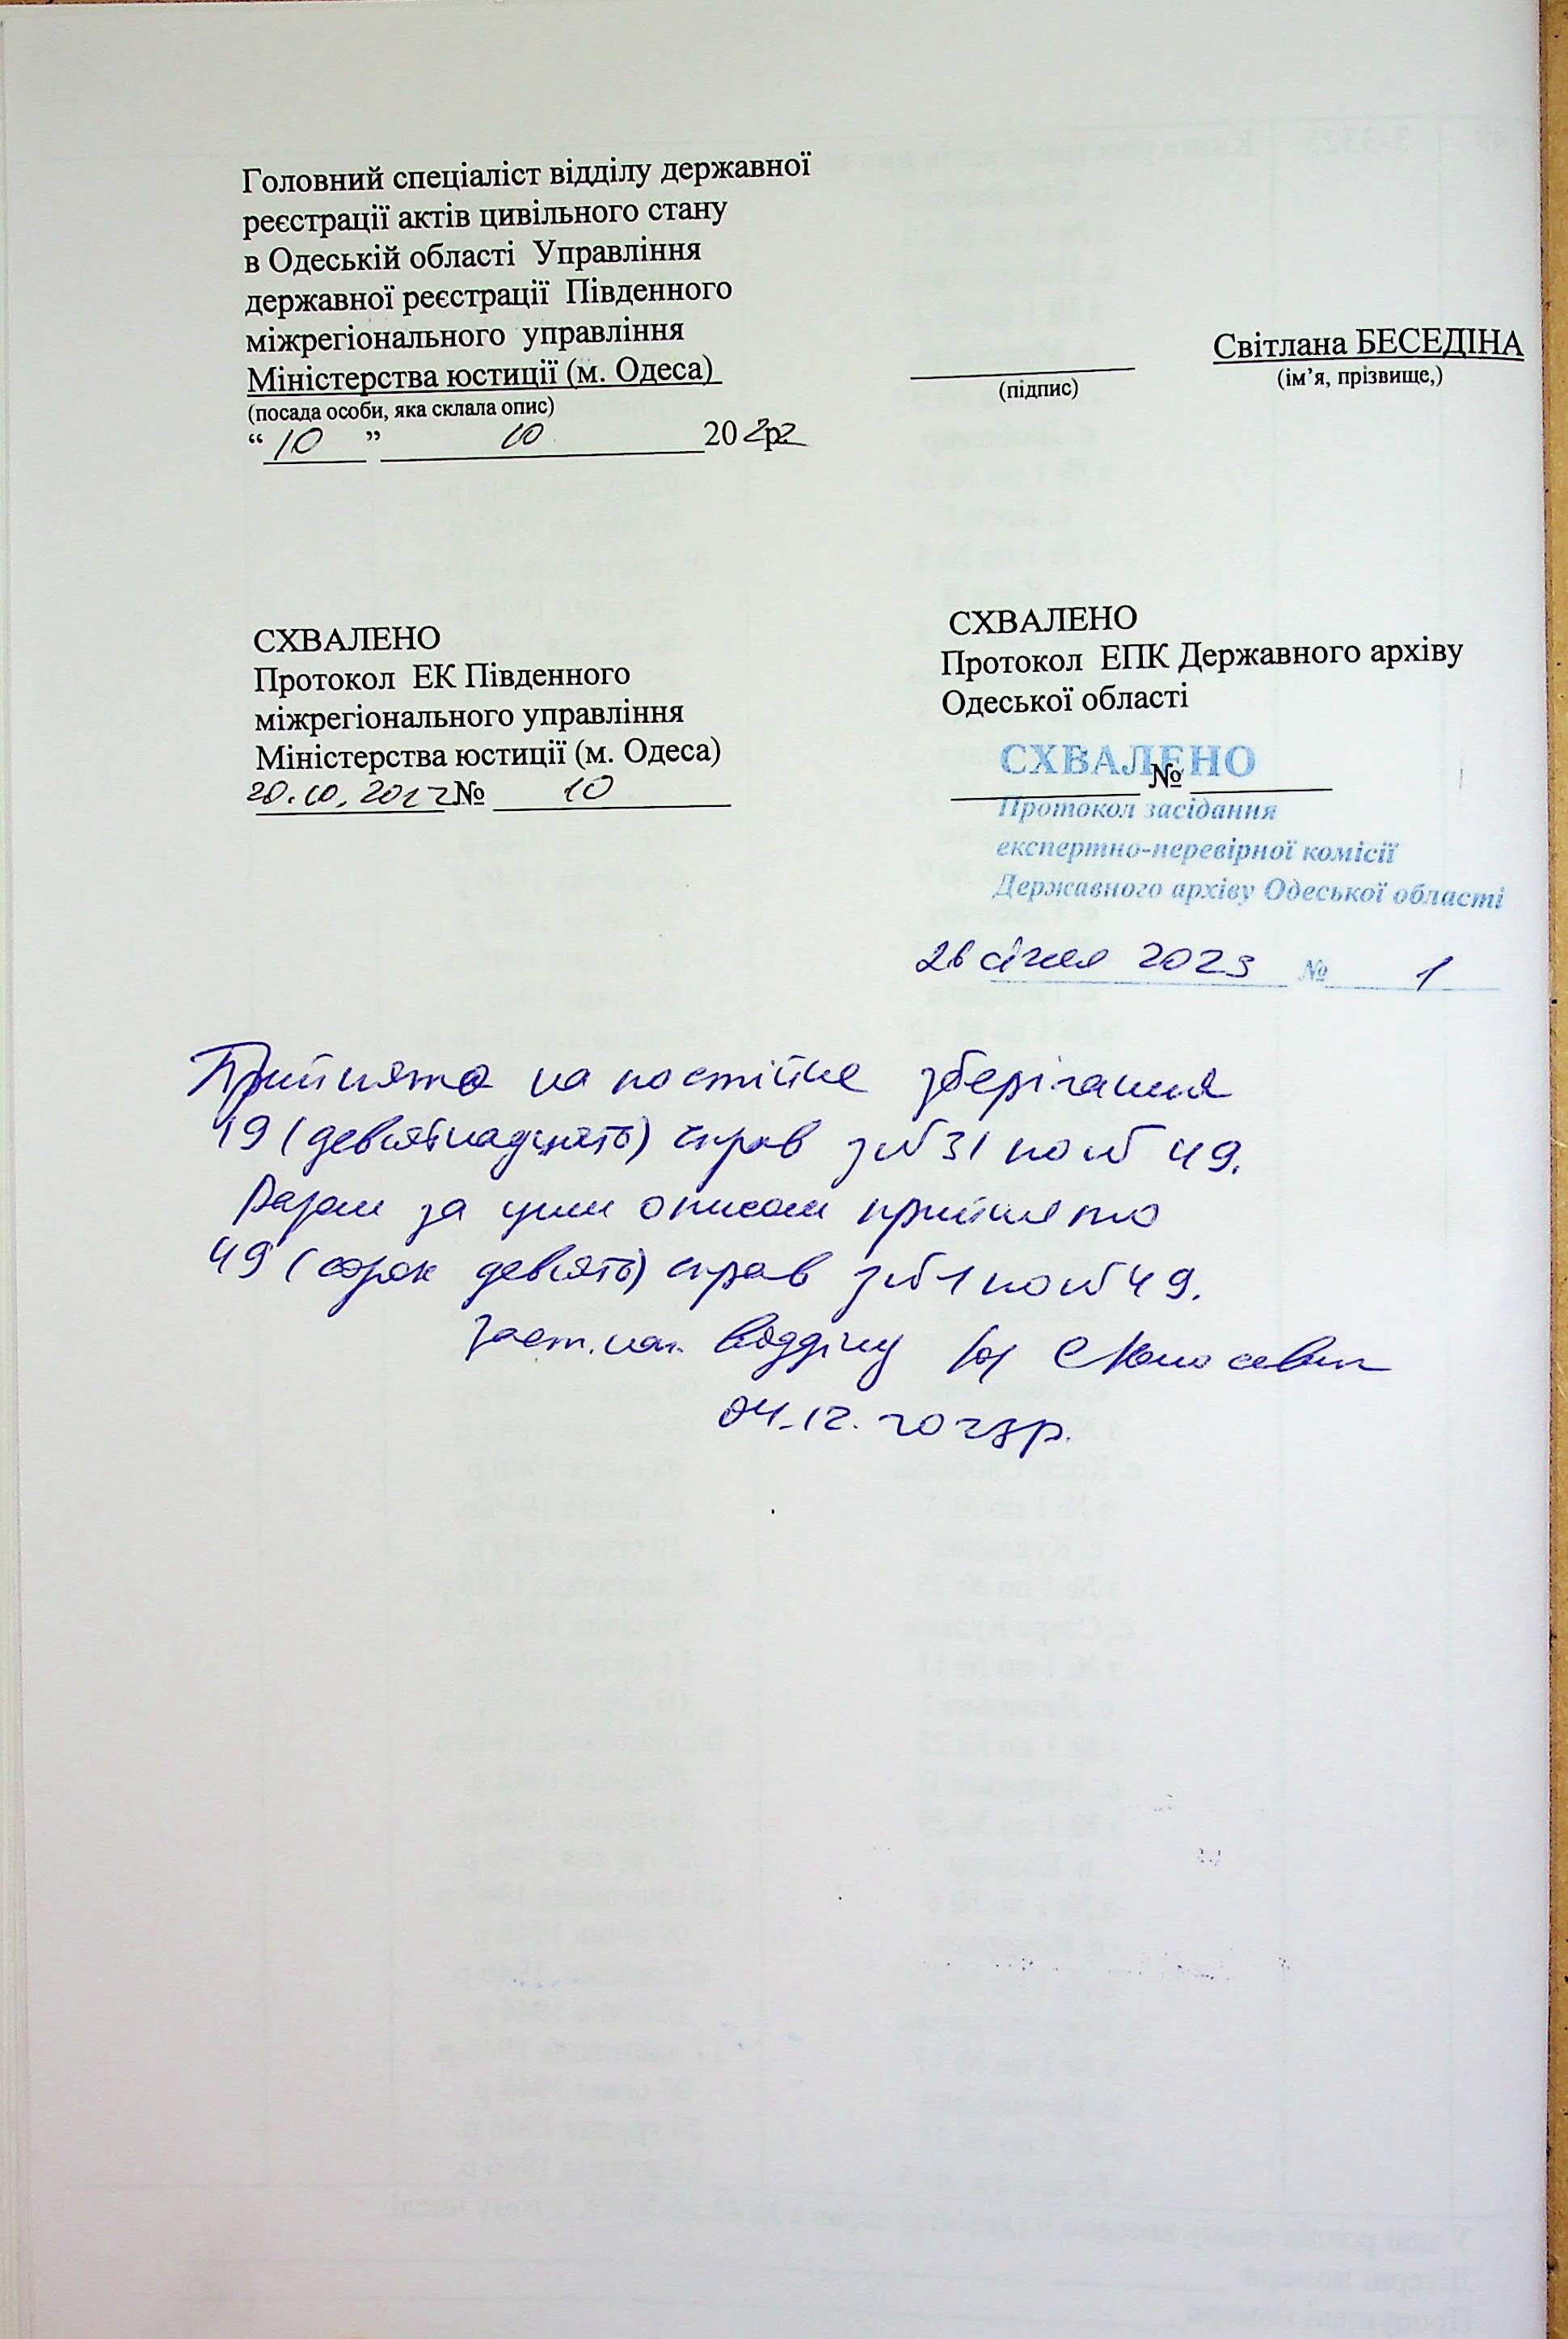 Головний спеціаліст відділу державної
реєстрації актів цивільного стану
в Одеській області Управління
державної реєстрації Південного
міжрегіонального управління
Міністерства юстиції (м. Одеса)
(посада особи, яка склала опис)
“ 10 ” 10 2022 р.
(підпис)
Світлана БЕСЕДІНА
(ім’я, прізвище,)
СХВАЛЕНО
Протокол ЕК Південного
міжрегіонального управління
Міністерства юстиції (м. Одеса)
20.10.2022 № 10
СХВАЛЕНО
Протокол ЕПК Державного архіву
Одеської області
№
СХВАЛЕНО
Протокол засідання
експертно-перевірної комісії
Державного архіву Одеської області
26 січня 2023 № 1
Прийнято на постійне зберігання
19 (дев'ятнадцять) справ з № 31 по № 49.
Разом за цим описом прийнято
49 (сорок дев'ять) справ з № 1 по № 49.
Заст. нач. відділу
04.12.2023р.